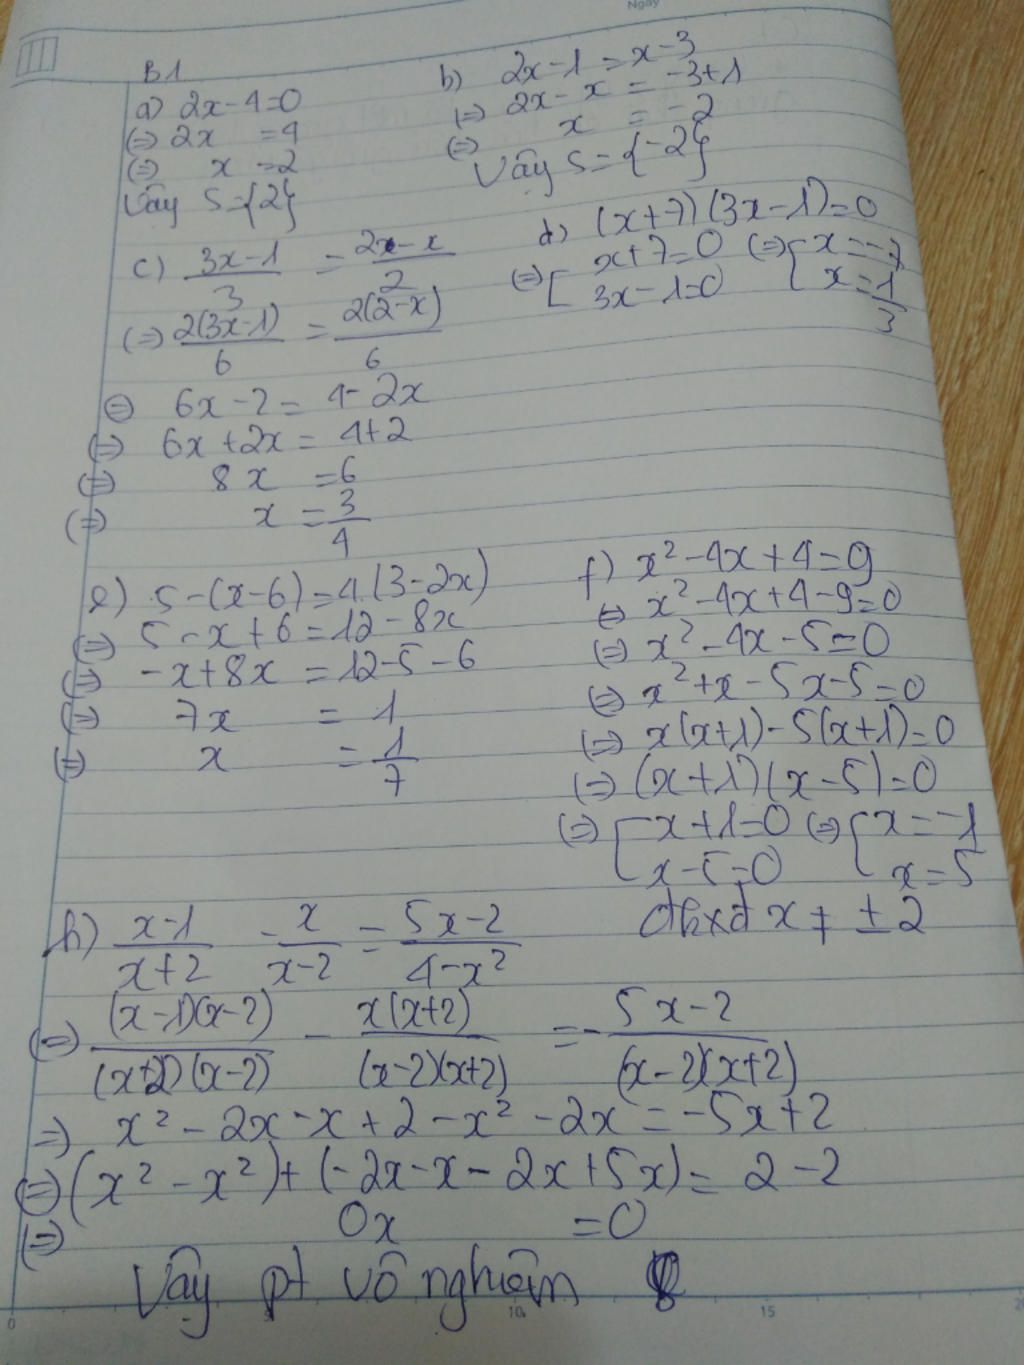 Ngày
B1
a) 2x-4=0
(=) 2x =4
(=) x =2
Vậy S={2}
b) 2x-1=x-3
(=) 2x-x = -3+1
(=) x = -2
Vậy S={-2}
c) \frac{3x-1}{3} = \frac{2-x}{2}
(=) \frac{2(3x-1)}{6} = \frac{2(2-x)}{6}
(=) 6x-2 = 4-2x
(=) 6x+2x = 4+2
(=) 8x =6
(=) x = \frac{3}{4}
d) (x+7)(3x-1)=0
(=) [ x+7=0 (=) [ x=-7
3x-1=0 x=\frac{1}{3}
e) 5-(x-6)=4.(3-2x)
(=) 5-x+6=12-8x
(=) -x+8x =12-5-6
(=) 7x = 1
(=) x = \frac{1}{7}
f) x²-4x+4=9
(=) x²-4x+4-9=0
(=) x²-4x-5=0
(=) x²+x-5x-5=0
(=) x(x+1)-5(x+1)=0
(=) (x+1)(x-5)=0
(=) [ x+1=0 (=) [ x=-1
x-5=0 x=5
h) \frac{x-1}{x+2} - \frac{x}{x-2} = \frac{5x-2}{4-x²} đkxđ x ≠ ±2
(=) \frac{(x-1)(x-2)}{(x+2)(x-2)} - \frac{x(x+2)}{(x-2)(x+2)} = -\frac{5x-2}{(x-2)(x+2)}
=) x²-2x-x+2-x²-2x=-5x+2
(=) (x²-x²)+(-2x-x-2x+5x)= 2-2
(=) 0x =0
Vậy pt vô nghiệm
0 10 15